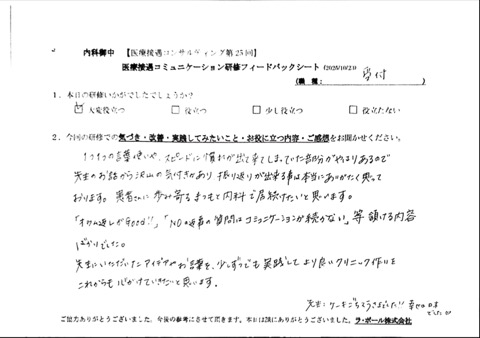 内科御中 【医療接遇コンサルティング第25回】
医療接遇コミュニケーション研修フィードバックシート (2025/10/23)
(職種: 受付 )
1. 本日の研修いかがでしたでしょうか?
☑大変役立つ □役立つ □少し役立つ □役立たない
2. 今回の研修での気づき・改善・実践してみたいこと・お役に立つ内容・ご感想をお聞かせください。
1つ1つの言葉使いや、スピードに慣れが出て来てしまっていた部分がやはりあるので
先生のお話から沢山の気付きがあり 振り返りが出来る事は本当にありがたく思って
おります。患者さんに歩み寄る まつもと内科で居続けたいと思います。
「オウム返しがGood!!」「NOの返事の質問はコミュニケーションが続かない」等 頷ける内容
ばかりでした。
先生にいただいたアイデアやお言葉を、少しずつでも実践して より良いクリニック作りを
これからも心がけていきたいと思います。
先生、ケーキごちそうさまでした! 幸せな味
でした
ご協力ありがとうございました。今後の参考にさせて頂きます。本日は誠にありがとうございました。ラ・ポール株式会社